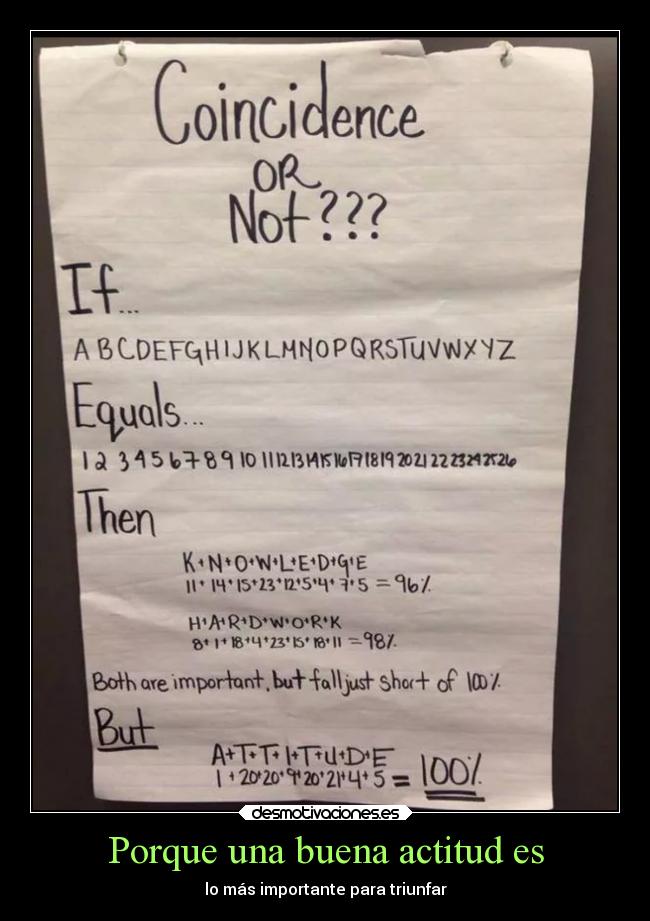 Coincidence
OR
Not???
If...
A B C D E F G H I J K L M N O P Q R S T U V W X Y Z
Equals...
1 2 3 4 5 6 7 8 9 10 11 12 13 14 15 16 17 18 19 20 21 22 23 24 25 26
Then
K+N+O+W+L+E+D+G+E
11+14+15+23+12+5+4+7+5=96%
H+A+R+D+W+O+R+K
8+1+18+4+23+15+18+11=98%
Both are important, but fall just short of 100%
But
A+T+T+I+T+U+D+E
1+20+20+9+20+21+4+5=100%
desmotivaciones.es
Porque una buena actitud es
lo más importante para triunfar